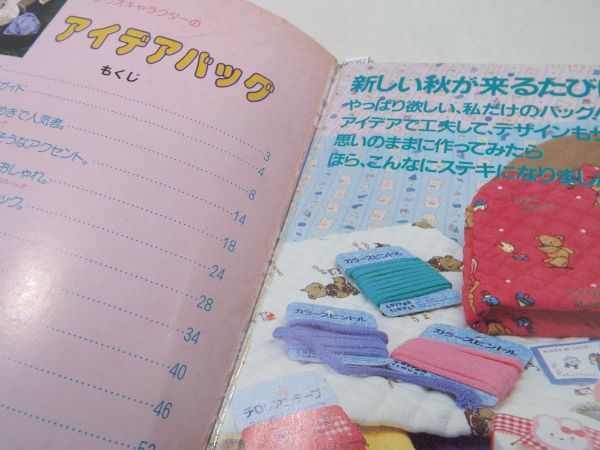 リオキャラクターの
アイデアバッグ
もくじ
ガイド
3
めきで人気者。
4
そうなアクセント。
8
おしゃれ。
14
ック。
18
24
28
34
40
46
52
新しい秋が来るたび
やっぱり欲しい、私だけのバッグ!
アイデアで工夫して、デザインも
思いのままに作ってみたら
ほら、こんなにステキになりまし
カラースピンドル
カラースピンドル
カラースピンドル
テロンアーテープ